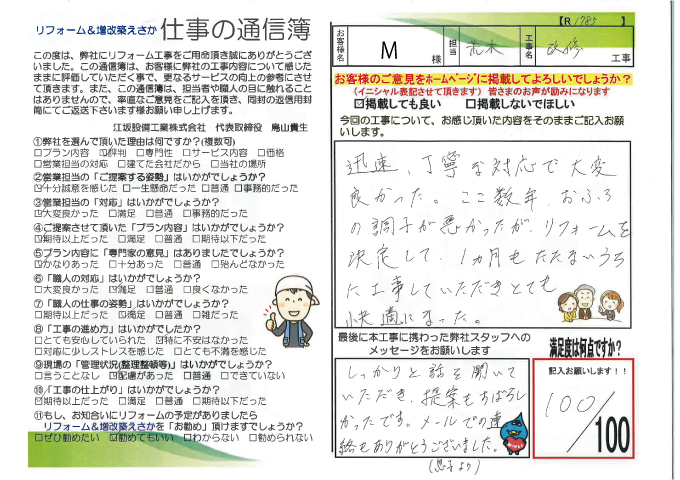 リフォーム&増改築えさか 仕事の通信簿
この度は、弊社にリフォーム工事をご用命頂き誠にありがとうござ
いました。この通信簿は、お客様に弊社の工事内容について感じた
ままに評価していただく事で、更なるサービスの向上の参考にさせ
て頂きます。また、この通信簿は、担当者や職人の目に触れること
はありませんので、率直なご意見をご記入を頂き、同封の返信用封
筒にてご返送下さいます様お願い申し上げます。
江坂設備工業株式会社 代表取締役 鳥山貴生
①弊社を選んで頂いた理由は何ですか?(複数可)
□プラン内容 ☑評判 □専門性 □サービス内容 □価格
□営業担当の対応 □建てた会社だから □当社の場所
②営業担当の「ご提案する姿勢」はいかがでしょうか?
☑十分誠意を感じた □一生懸命だった □普通 □事務的だった
③営業担当の「対応」はいかがでしょうか?
☑大変良かった □満足 □普通 □事務的だった
④ご提案させて頂いた「プラン内容」はいかがでしょうか?
☑期待以上だった □満足 □普通 □期待以下だった
⑤プラン内容に「専門家の意見」はありましたでしょうか?
☑かなりあった □十分あった □普通 □殆んどなかった
⑥「職人の対応」はいかがでしょうか?
☑大変良かった □満足 □普通 □良くなかった
⑦「職人の仕事の姿勢」はいかがでしょうか?
□期待以上だった ☑満足 □普通 □雑だった
⑧「工事の進め方」はいかがでしたか?
□とても安心していられた ☑特に不安はなかった
□対応に少しストレスを感じた □とても不満を感じた
⑨現場の「管理状況(整理整頓等)」はいかがでしょうか?
□言うことなし ☑配慮があった □普通 □できていない
⑩「工事の仕上がり」はいかがでしょうか?
☑期待以上だった □満足 □普通 □期待以下だった
⑪もし、お知合いにリフォームの予定がありましたら
リフォーム&増改築えさかを「お勧め」頂けますでしょうか?
□ぜひ勧めたい ☑勧めてもいい □わからない □勧められない
【R 1785 】
お客様名 M 様 担当 荒木 工事名 改修 工事
お客様のご意見をホームページに掲載してよろしいでしょうか?
(イニシャル表記させて頂きます) 皆さまのお声が励みになります
☑掲載しても良い □掲載しないでほしい
今回の工事について、お感じ頂いた内容をそのままご記入お願
いします。
迅速、丁寧な対応で大変
良かった。ここ数年、おふろ
の調子が悪かったが、リフォームを
決定して、1カ月もたたないうち
に工事していただきとても
快適になった。
最後に本工事に携わった弊社スタッフへの
メッセージをお願いします
しっかりと話を聞いて
いただき、提案もすばらし
かったです。メールでの連
絡もありがとうございました。
(息子より)
満足度は何点ですか?
記入お願いします!!
100/100